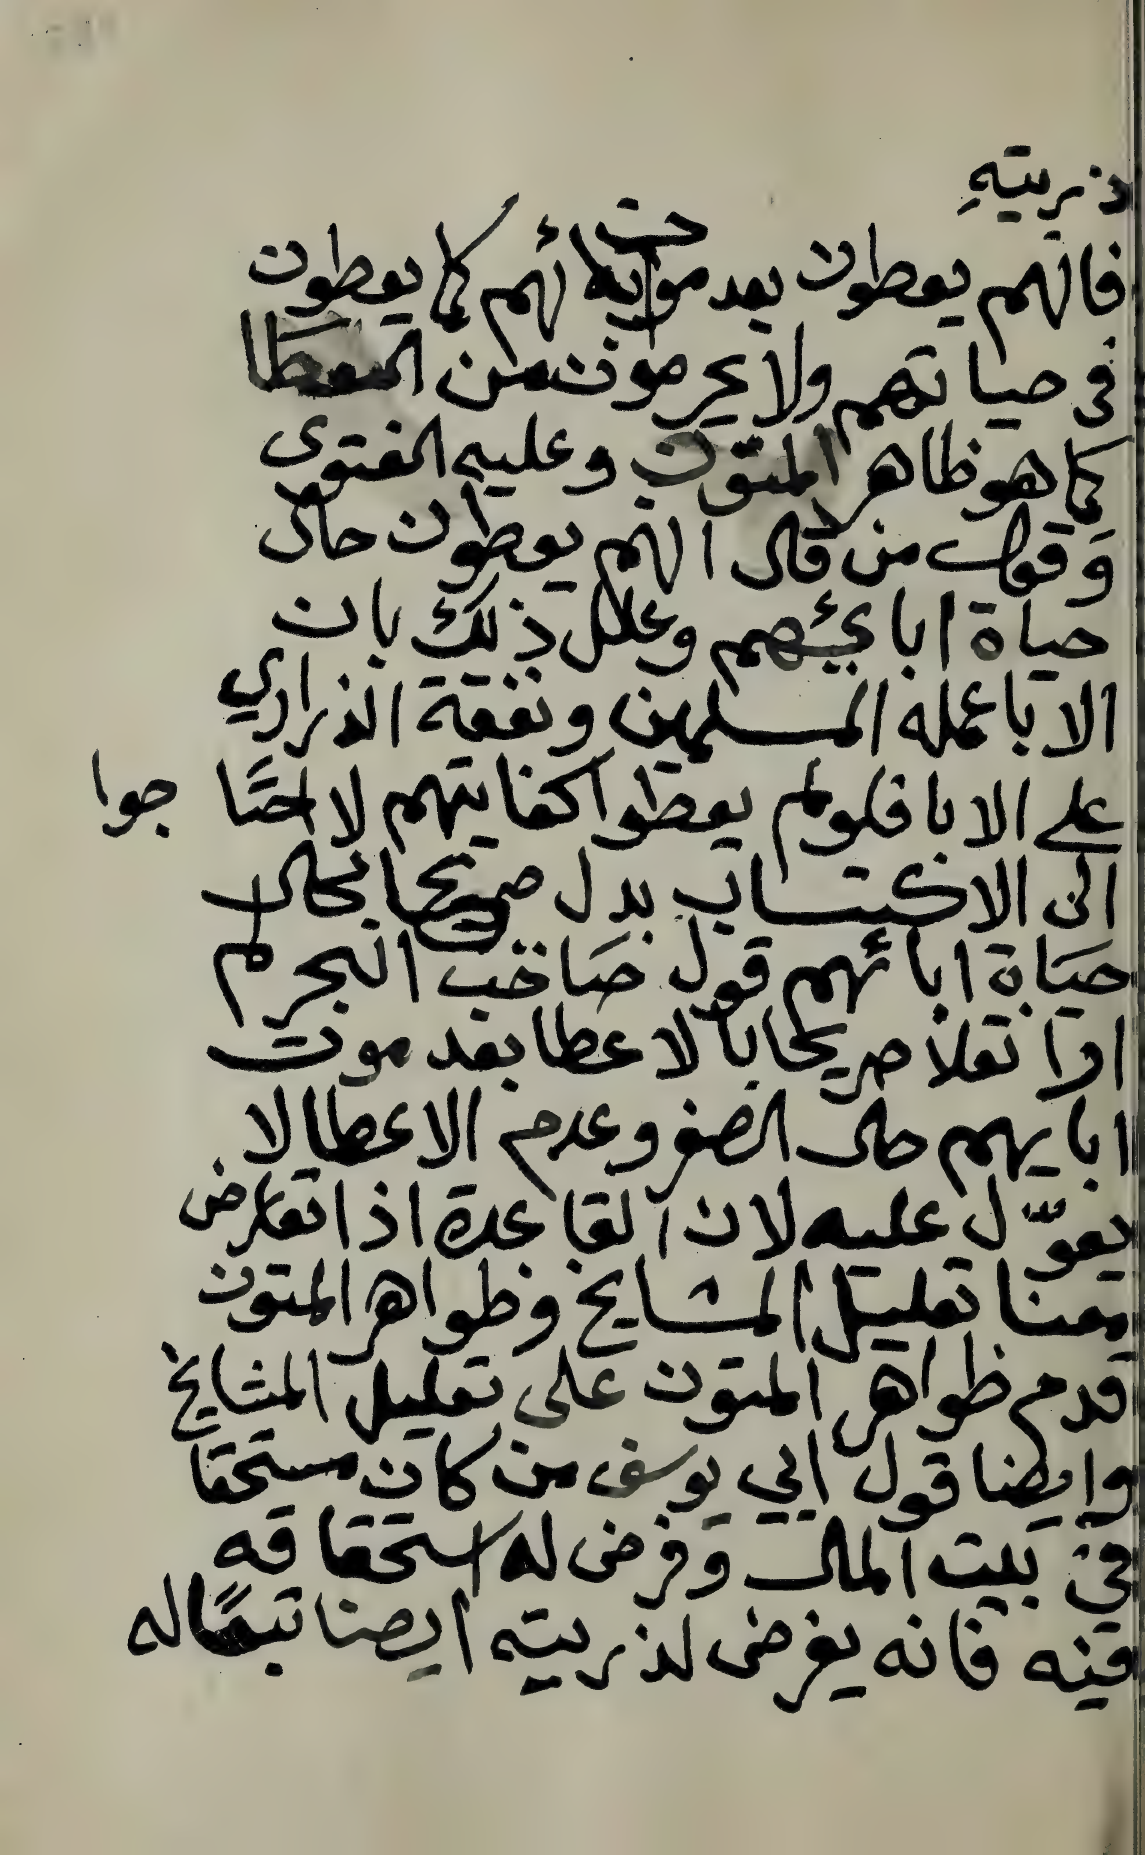 ذريته
فانهم يعطون بعد موت ابائهم كما يعطون
في حياتهم ولا يحرمون من المعطا
كما هو ظاهر المتون وعليه الفتوى
وقول من قال انهم يعطون حال
حياة ابائهم وعلل ذلك بان
الابا عمله المسلمين ونفقة الذراري
على الابا فلو لم يعطوا كفايتهم لاحتاجوا
الى الاكتساب بدل صريحا بحال
حياة ابائهم قول صاحب البحر لم
ار نقلا صريحا بالاعطا بعد موت
ابايهم حال الصغر وعدم الاعطا لا
يعوّل عليه لان القاعدة اذا تعارض
معنا تعليل المشايخ وظواهر المتون
قدم ظواهر المتون على تعليل المشايخ
وايضا قول ابي يوسف من كان مستحقا
في بيت المال وفرض له استحقاقه
فيه فانه يفرض لذريته ايضا تبعًا له